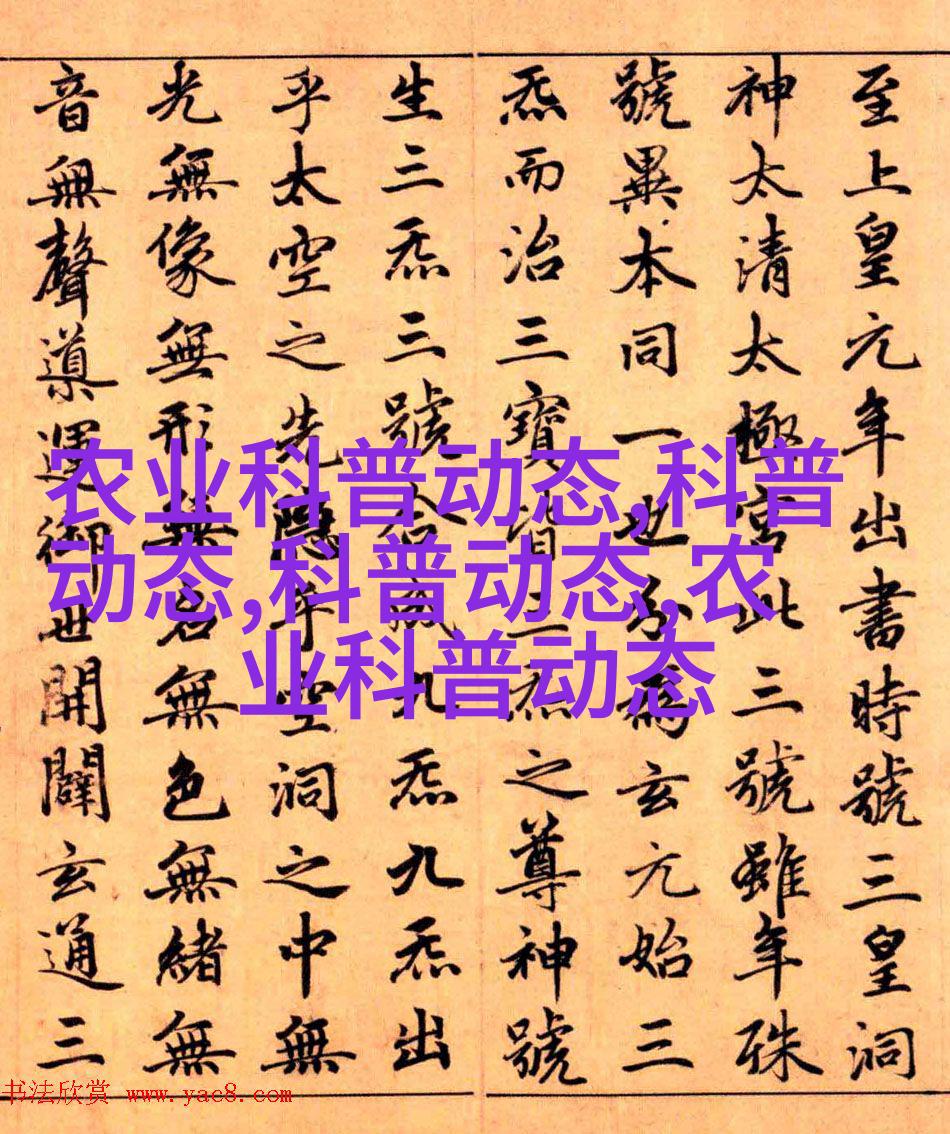 至上皇元年出書時號三皇洞
神太清太極宮此三號雖年殊
號異本同一也分為玄元始三
炁而治三寶皆三炁之尊神號
生三炁三號合成九炁九炁出
乎太空之先隱乎空洞之中無
光無像無形無名無色無緒無
音無聲導運御世開闢玄通三
农业科普动态,科普
动态,科普动态,农
业科普动态
书法欣赏 www.yac8.com